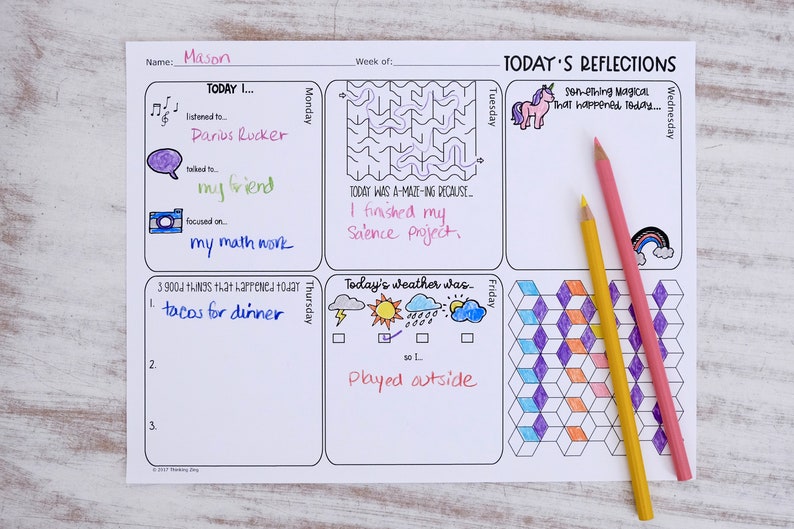 Name: Mason Week of: TODAY'S REFLECTIONS
TODAY I...
Monday
listened to...
Darius Rucker
talked to...
my friend
focused on...
my math work
Tuesday
TODAY WAS A-MAZE-ING BECAUSE...
I finished my
Science Project.
Something Magical
that happened today...
Wednesday
3 GOOD THINGS THAT HAPPENED TODAY
Thursday
1. tacos for dinner
2.
3.
Today's weather was...
Friday
so I...
Played outside
© 2017 Thinking Zing